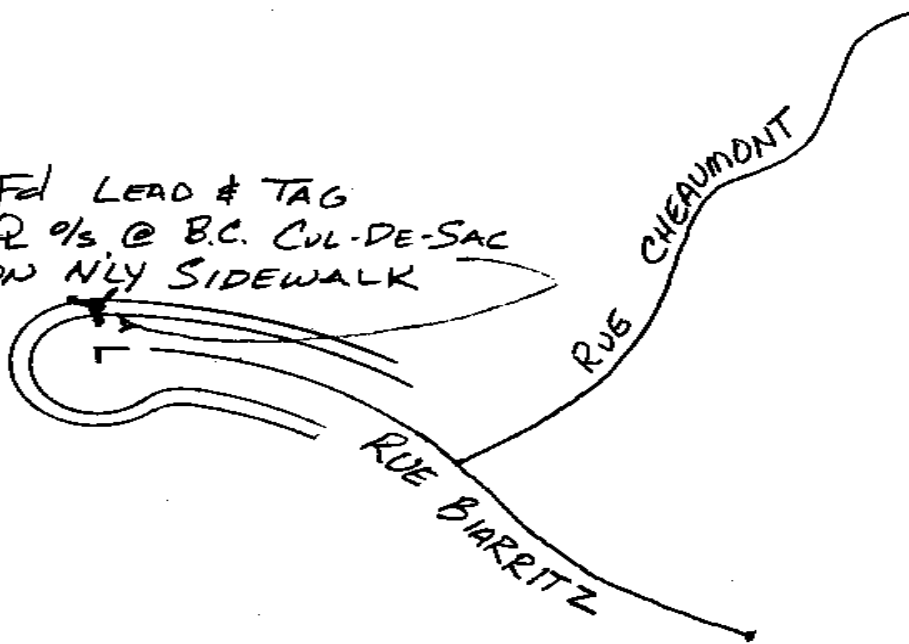 Fd LEAD & TAG
o/s @ B.C. CUL-DE-SAC
ON N'LY SIDEWALK
RUE CHEAUMONT
RUE BIARRITZ